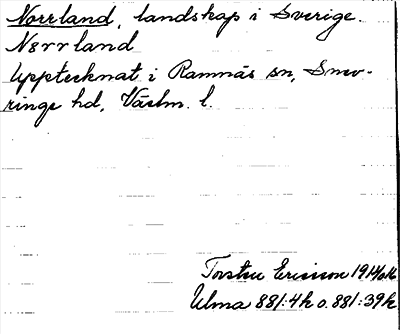 Norrland, landskap i Sverige.
Nørrland
Upptecknat i Ramnäs sn, Snev-
ringe hd, Västm. l.
Torsten Ericsson 1914 o. 16
Ulma 881:4 k o. 881:39 k